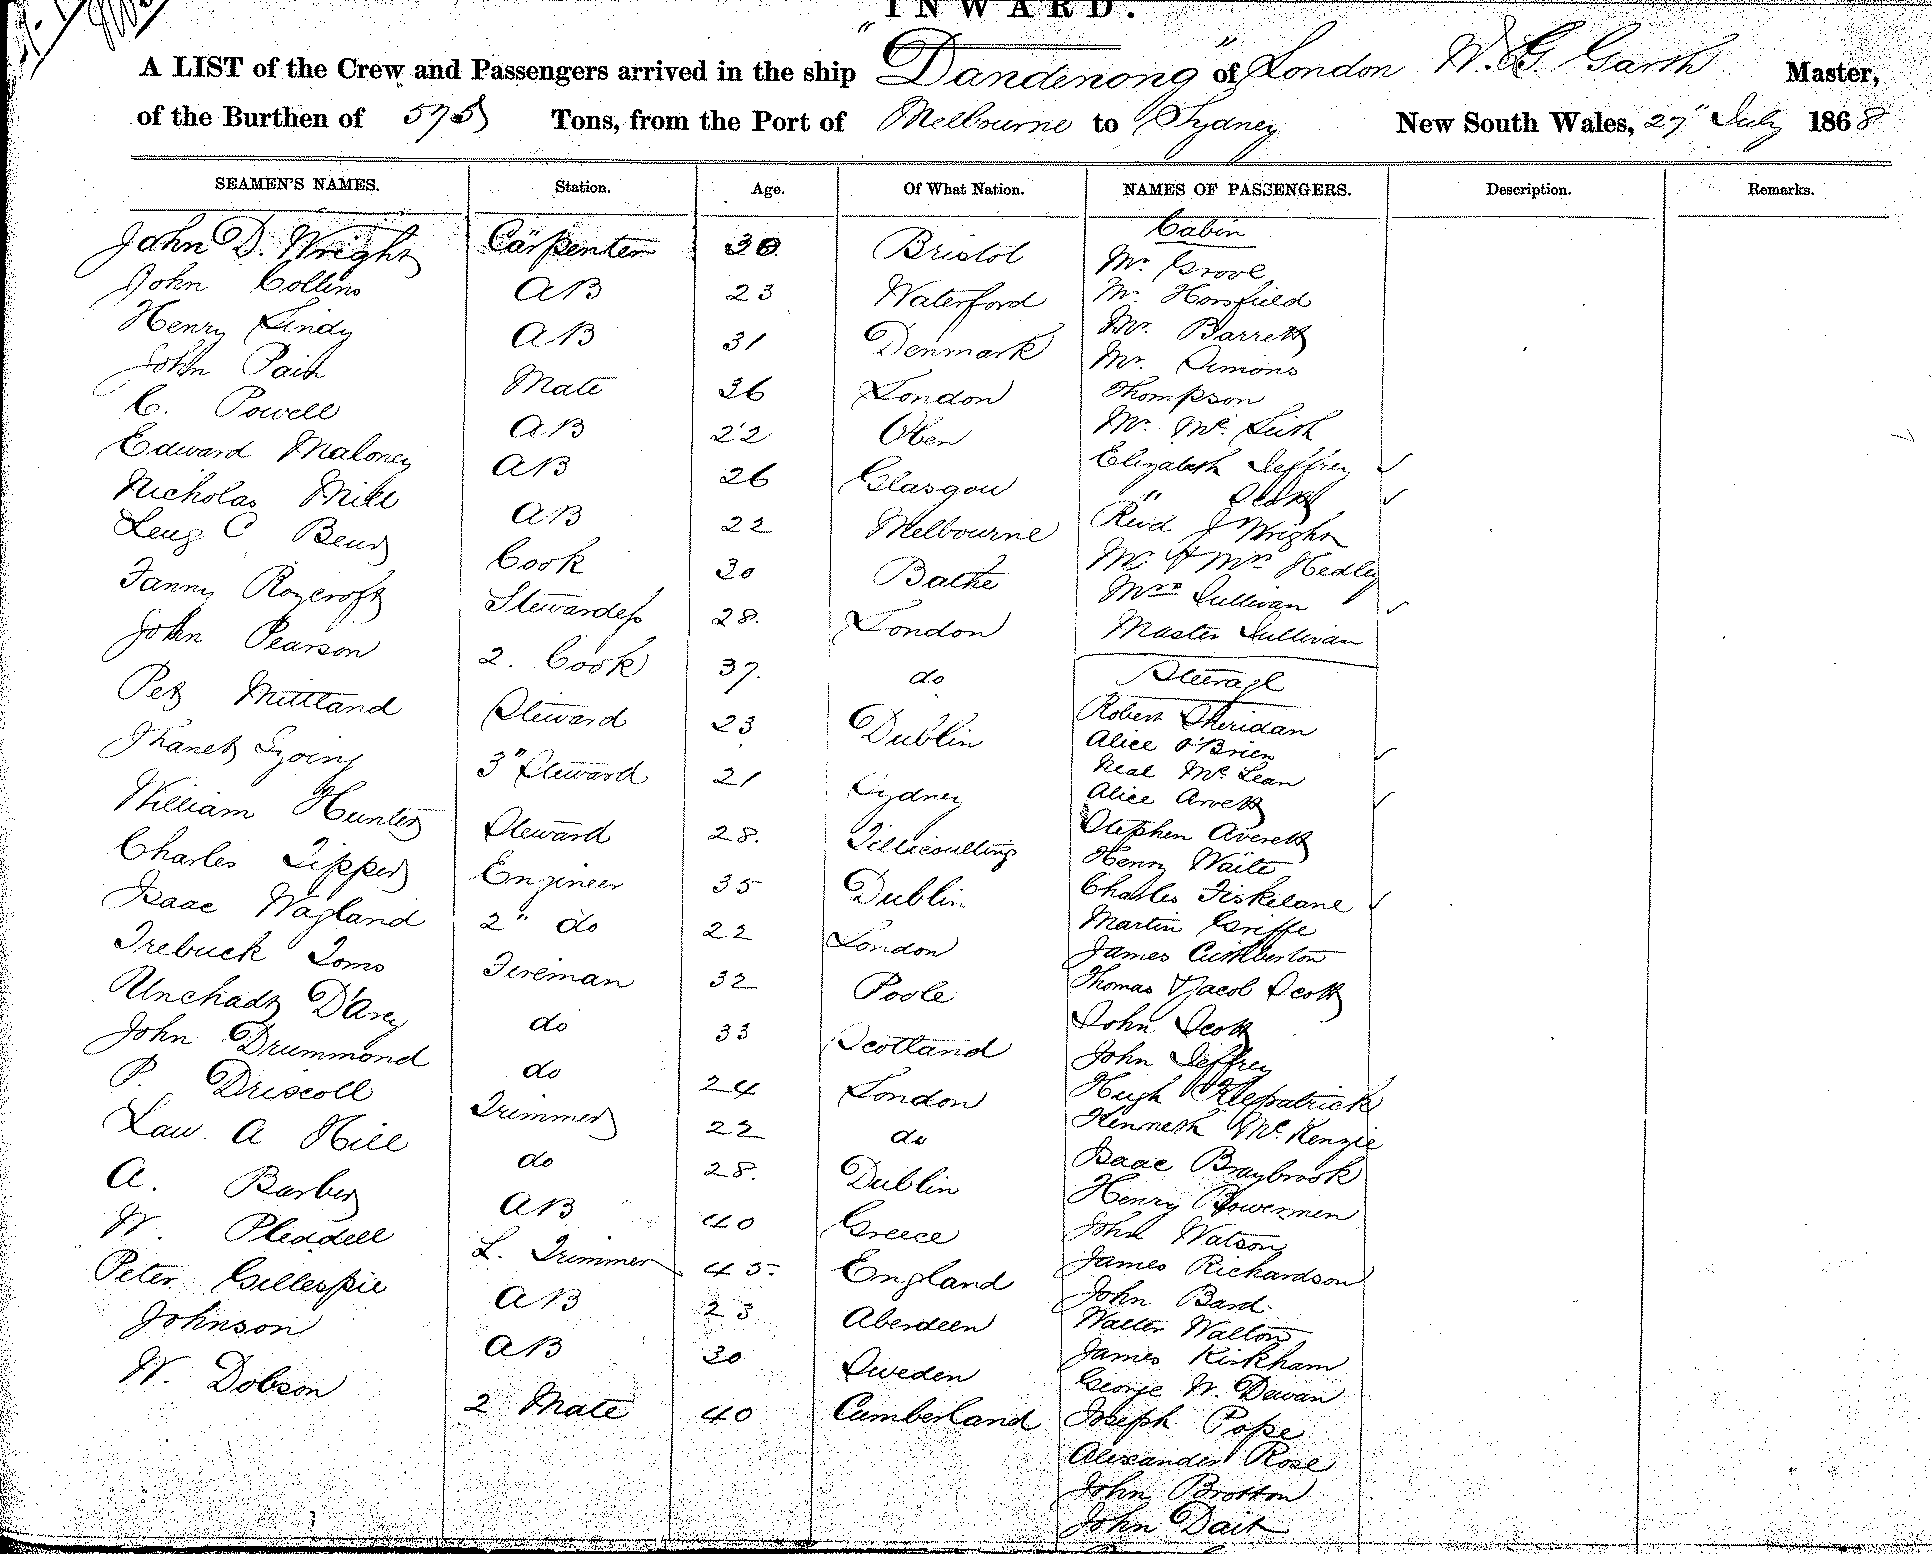 INWARD.
A LIST of the Crew and Passengers arrived in the ship "Dandenong" of London W. G. Garth Master,
of the Burthen of 575 Tons, from the Port of Melbourne to Sydney New South Wales, 27" July 1868
SEAMEN'S NAMES. Station. Age. Of What Nation. NAMES OF PASSENGERS. Description. Remarks.
John D. Wright Carpenter 30. Bristol
John Collins AB 23 Waterford
Henry Lindy AB 31 Denmark
John Pain Mate 36 London
C. Powell AB 22
Edward Maloney AB 26 Glasgow
Nicholas Mill AB 22 Melbourne
Cook 30
Fanny Roycroft Stewardess 28. London
John Pearson 2. Cook 37. do
Pet Mittland Steward 23 Dublin
3" Steward 21 Sydney
William Hunter Steward 28.
Charles Tipper Engineer 35 Dublin
Isaac Wagland 2" do 22 London
Trebuck Toms Fireman 32 Poole
D'Arcy do 33 Scotland
John Drummond do 24 London
P. Driscoll Trimmer 22 do
Law. A Hill do 28. Dublin
A. Barber AB 40 Greece
W. Pleadell L. Trimmer 45. England
Peter Gillespie AB 23 Aberdeen
Johnson AB 30 Sweden
W. Dobson 2 Mate 40 Cumberland
Cabin
Mr. Grove
Mr. Horsfield
Mr. Barrett
Mr. Simons
Thompson
Mr. Mc.
Elizabeth Jeffrey
"
Revd J Wright
Mr & Mrs Hedley
Mrs Sullivan
Master Sullivan
Steerage
Robert Sheridan
Alice O'Brien
Neal Mc Lean
Alice
Stephen Averett
Henry Waite
Charles
Martin Griffe
James Cuthberton
Thomas & Jacob Scott
John Scott
John Jeffrey
Hugh Kilpatrick
Kenneth Mc. Kenzie
Isaac Braybrook
Henry Bowermen
John Watson
James Richardson
John Bard
Walter Walton
James Kirkham
George W. Dewan
Joseph Pope
Alexander Rose
John Brotton
John Dait